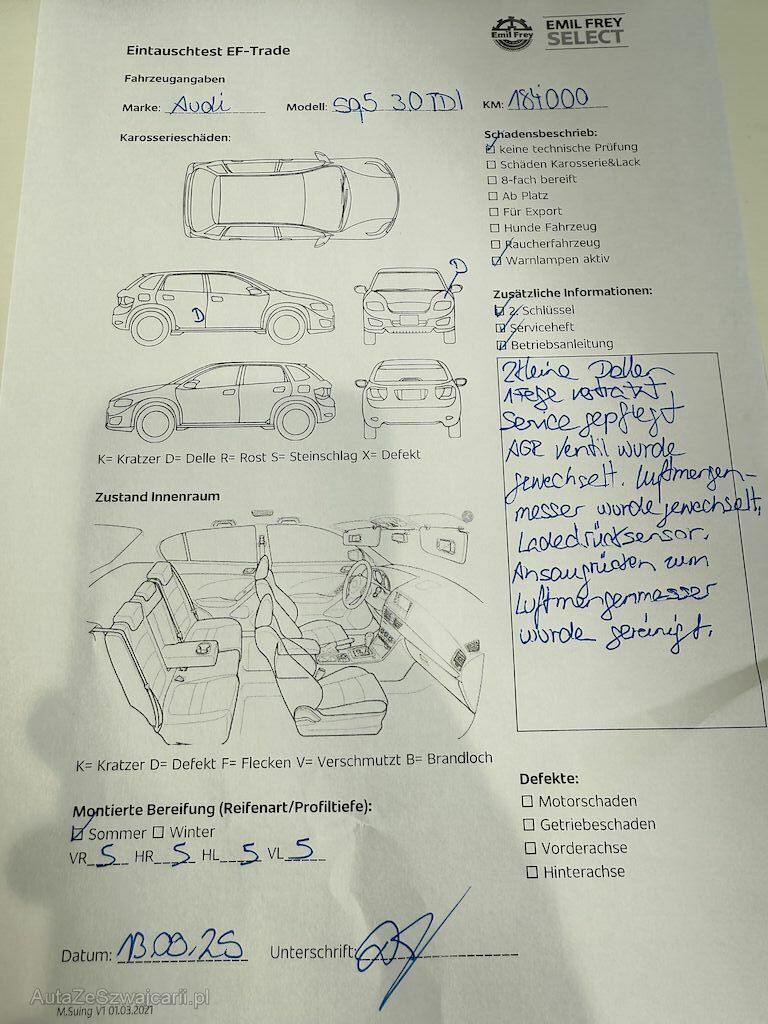 Emil Frey
EMIL FREY
SELECT
Eintauschtest EF-Trade
Fahrzeugangaben
Marke: Audi Modell: SQ5 3.0 TDI KM: 184000
Karosserieschäden:
D
D
K= Kratzer D= Delle R= Rost S= Steinschlag X= Defekt
Schadensbeschrieb:
☑ keine technische Prüfung
☐ Schäden Karosserie&Lack
☐ 8-fach bereift
☐ Ab Platz
☐ Für Export
☐ Hunde Fahrzeug
☐ Raucherfahrzeug
☑ Warnlampen aktiv
Zusätzliche Informationen:
☑ 2. Schlüssel
☑ Serviceheft
☑ Betriebsanleitung
2 kleine Dellen
1 Felge verkratzt
Service gepflegt
AGR Ventil wurde
gewechselt. Luftmengen-
messer wurde gewechselt,
Ladedrucksensor.
zum
Luftmengenmesser
wurde gereinigt.
Zustand Innenraum
K= Kratzer D= Defekt F= Flecken V= Verschmutzt B= Brandloch
Montierte Bereifung (Reifenart/Profiltiefe):
☑ Sommer ☐ Winter
VR 5 HR 5 HL 5 VL 5
Defekte:
☐ Motorschaden
☐ Getriebeschaden
☐ Vorderachse
☐ Hinterachse
Datum: 13.09.25 Unterschrift:
AutaZeSzwajcarii.pl
M.Suing V1 01.03.2021